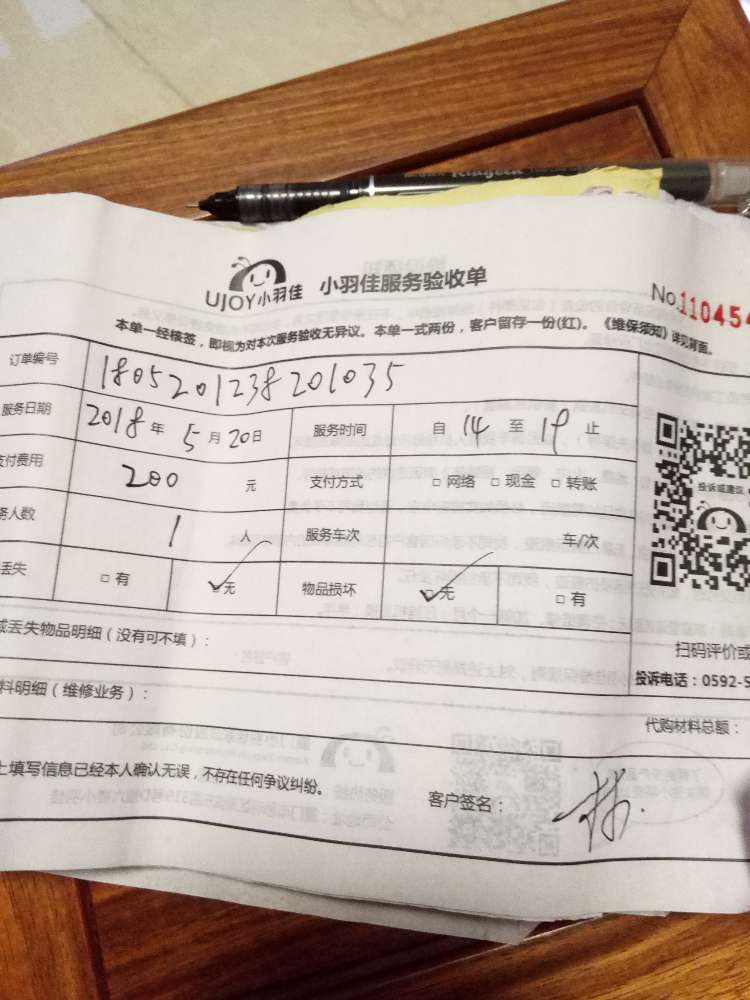 UJOY小羽佳 小羽佳服务验收单
No.110454
本单一经核签，即视为对本次服务验收无异议。本单一式两份，客户留存一份(红)。《维保须知》详见背面。
订单编号 1805201238201035
服务日期 2018年5月20日 服务时间 自14至19止
支付费用 200元 支付方式 □网络 □现金 □转账
务人数 1人 服务车次 车/次
丢失 □有 ✓无 物品损坏 ✓无 □有
投诉或建议
或丢失物品明细（没有可不填）：
扫码评价或
投诉电话：0592-5
料明细（维修业务）：
代购材料总额：
上填写信息已经本人确认无误，不存在任何争议纠纷。
客户签名：林